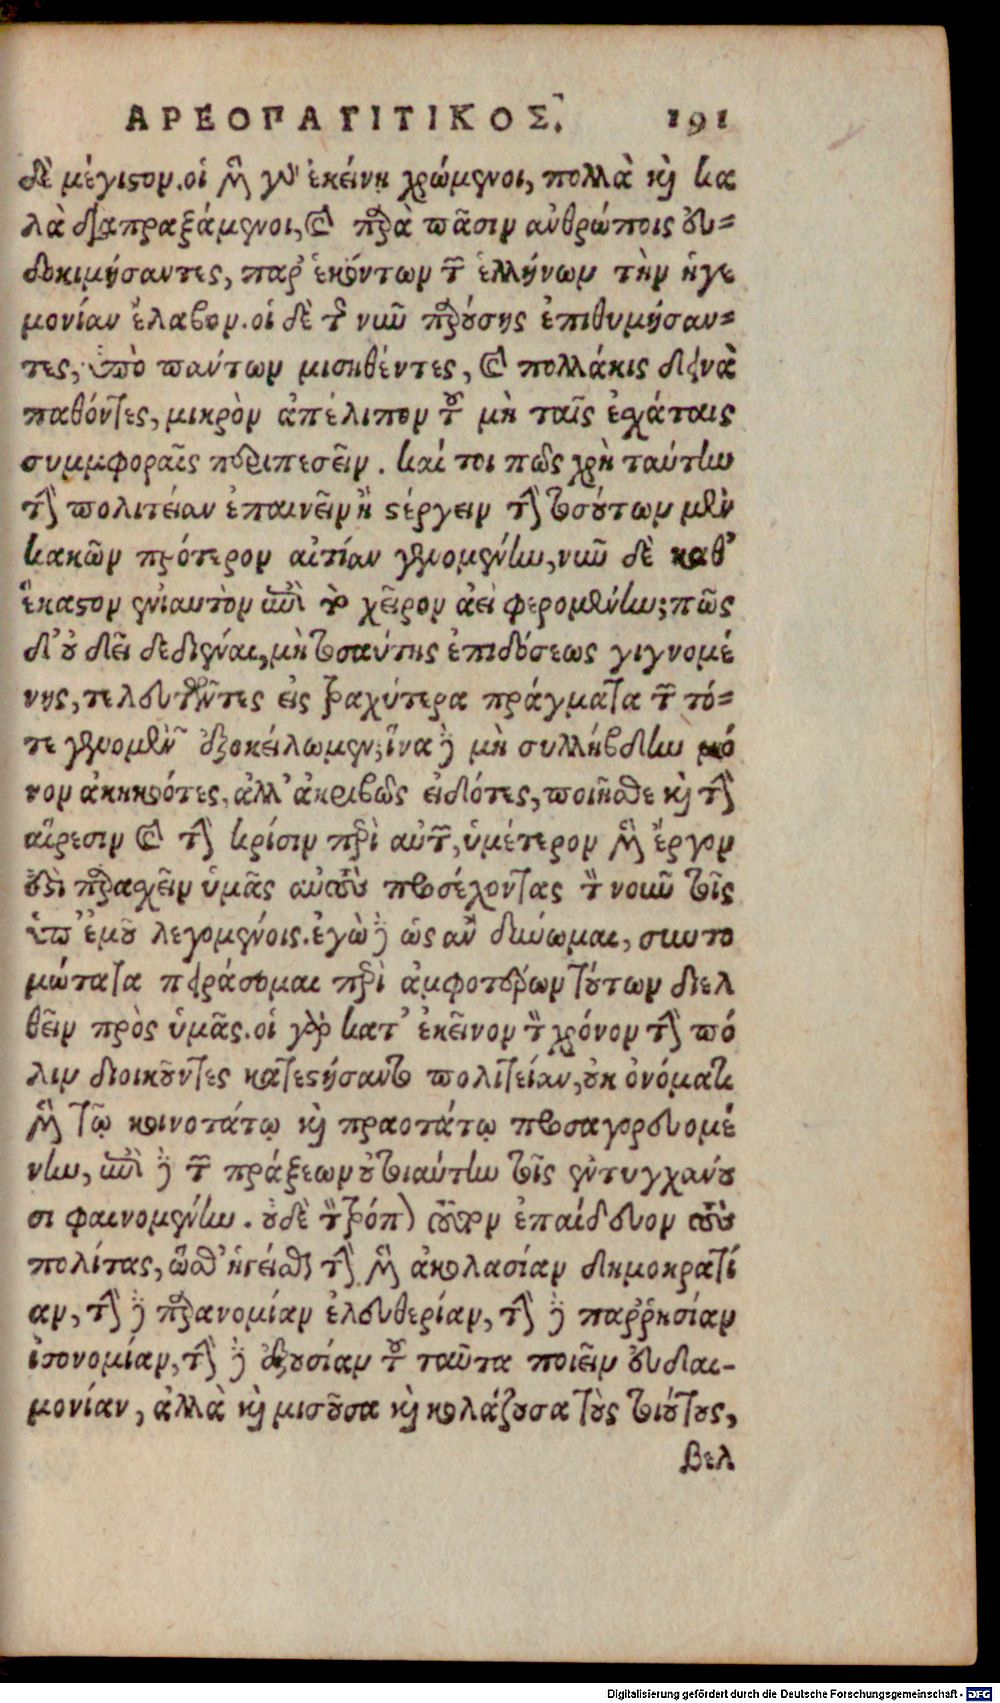 ΑΡΕΟΠΑΓΙΤΙΚΟΣ. 191
δὲ μέγιστον. οἱ μὲν γὰρ ἐκείνῃ χρώμενοι, πολλὰ καὶ κα
λὰ διαπραξάμενοι, καὶ παρὰ πᾶσιν ἀνθρώποις εὐ=
δοκιμήσαντες, παρ' ἑκόντων τῶν ἑλλήνων τὴν ἡγε
μονίαν ἔλαβον. οἱ δὲ τῆς νῦν παρούσης ἐπιθυμήσαν=
τες, ὑπὸ πάντων μισηθέντες, καὶ πολλάκις δεινὰ
παθόντες, μικρὸν ἀπέλιπον τοῦ μὴ ταῖς ἐσχάταις
συμφοραῖς περιπεσεῖν. καί τοι πῶς χρὴ ταύτην
τὴν πολιτείαν ἐπαινεῖν ἢ στέργειν τὴν τοσούτων μὲν
κακῶν πρότερον αἰτίαν γενομένην, νῦν δὲ καθ'
ἕκαστον ἐνιαυτὸν ἐπὶ τὸ χεῖρον ἀεὶ φερομένην; πῶς
δ' οὐ δεῖ δεδιέναι, μὴ τοσαύτης ἐπιδόσεως γιγνομέ
νης, τελευτῶντες εἰς τραχύτερα πράγματα τῶν τό=
τε γενομένων ἐξοκείλωμεν; ἵνα δὲ μὴ συλλήβδην μό
νον ἀκηκοότες, ἀλλ' ἀκριβῶς εἰδότες, ποιῆσθε καὶ τὴν
αἵρεσιν καὶ τὴν κρίσιν περὶ αὐτῶν, ὑμέτερον μὲν ἔργον
ἐστὶ παρασχεῖν ὑμᾶς αὐτοὺς προσέχοντας τὸν νοῦν τοῖς
ὑπ' ἐμοῦ λεγομένοις. ἐγὼ δὲ ὡς ἂν δύνωμαι, συντο
μώτατα πειράσομαι περὶ ἀμφοτέρων τούτων διελ
θεῖν πρὸς ὑμᾶς. οἱ γὰρ κατ' ἐκεῖνον τὸν χρόνον τὴν πό
λιν διοικοῦντες κατεστήσαντο πολιτείαν, οὐκ ὀνόματι
μὲν τῷ κοινοτάτῳ καὶ πραοτάτῳ προσαγορευομέ
νην, ἐπὶ δὲ τῶν πράξεων οὐ τοιαύτην τοῖς ἐντυγχάνου
σι φαινομένην. οὐδὲ τὸν τρόπον τοῦτον ἐπαίδευον τοὺς
πολίτας, ὥσθ' ἡγεῖσθαι τὴν μὲν ἀκολασίαν δημοκρατί
αν, τὴν δὲ παρανομίαν ἐλευθερίαν, τὴν δὲ παῤῥησίαν
ἰσονομίαν, τὴν δὲ ἐξουσίαν τοῦ ταῦτα ποιεῖν εὐδαι-
μονίαν, ἀλλὰ καὶ μισοῦσα καὶ κολάζουσα τοὺς τοιούτους,
βελ
Digitalisierung gefördert durch die Deutsche Forschungsgemeinschaft - DFG